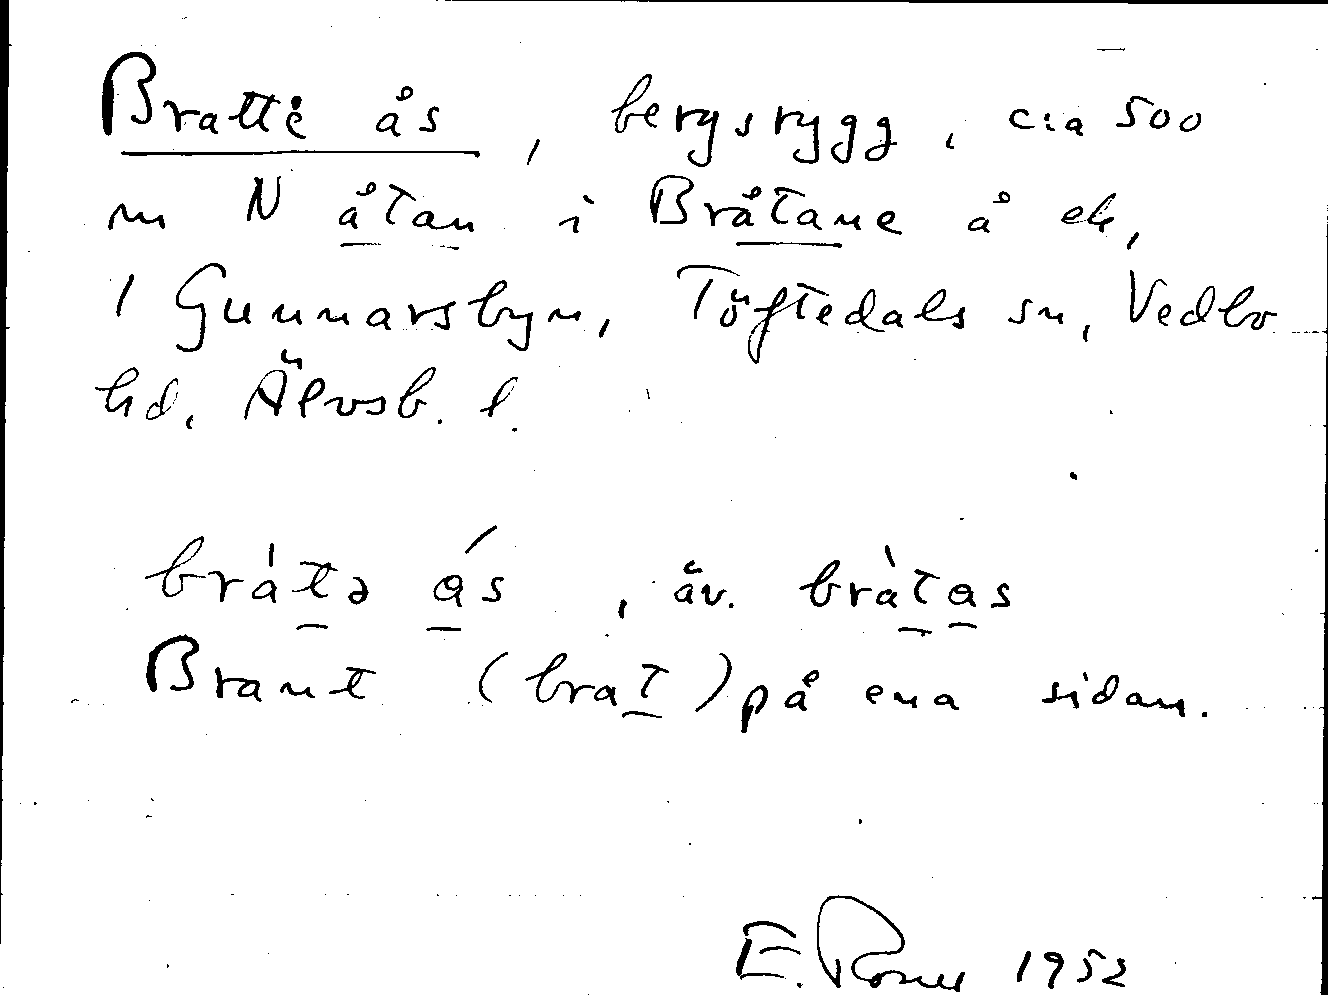 Bratte ås, bergsrygg, c:a 500
m N åtan i Bråtane å ek,
1 Gunnarsbyn, Töftedals sn, Vedbo
hd, Älvsb. l.
bràtə ás, äv. bràtas
Brant (brat) på ena sidan.
E. 1952